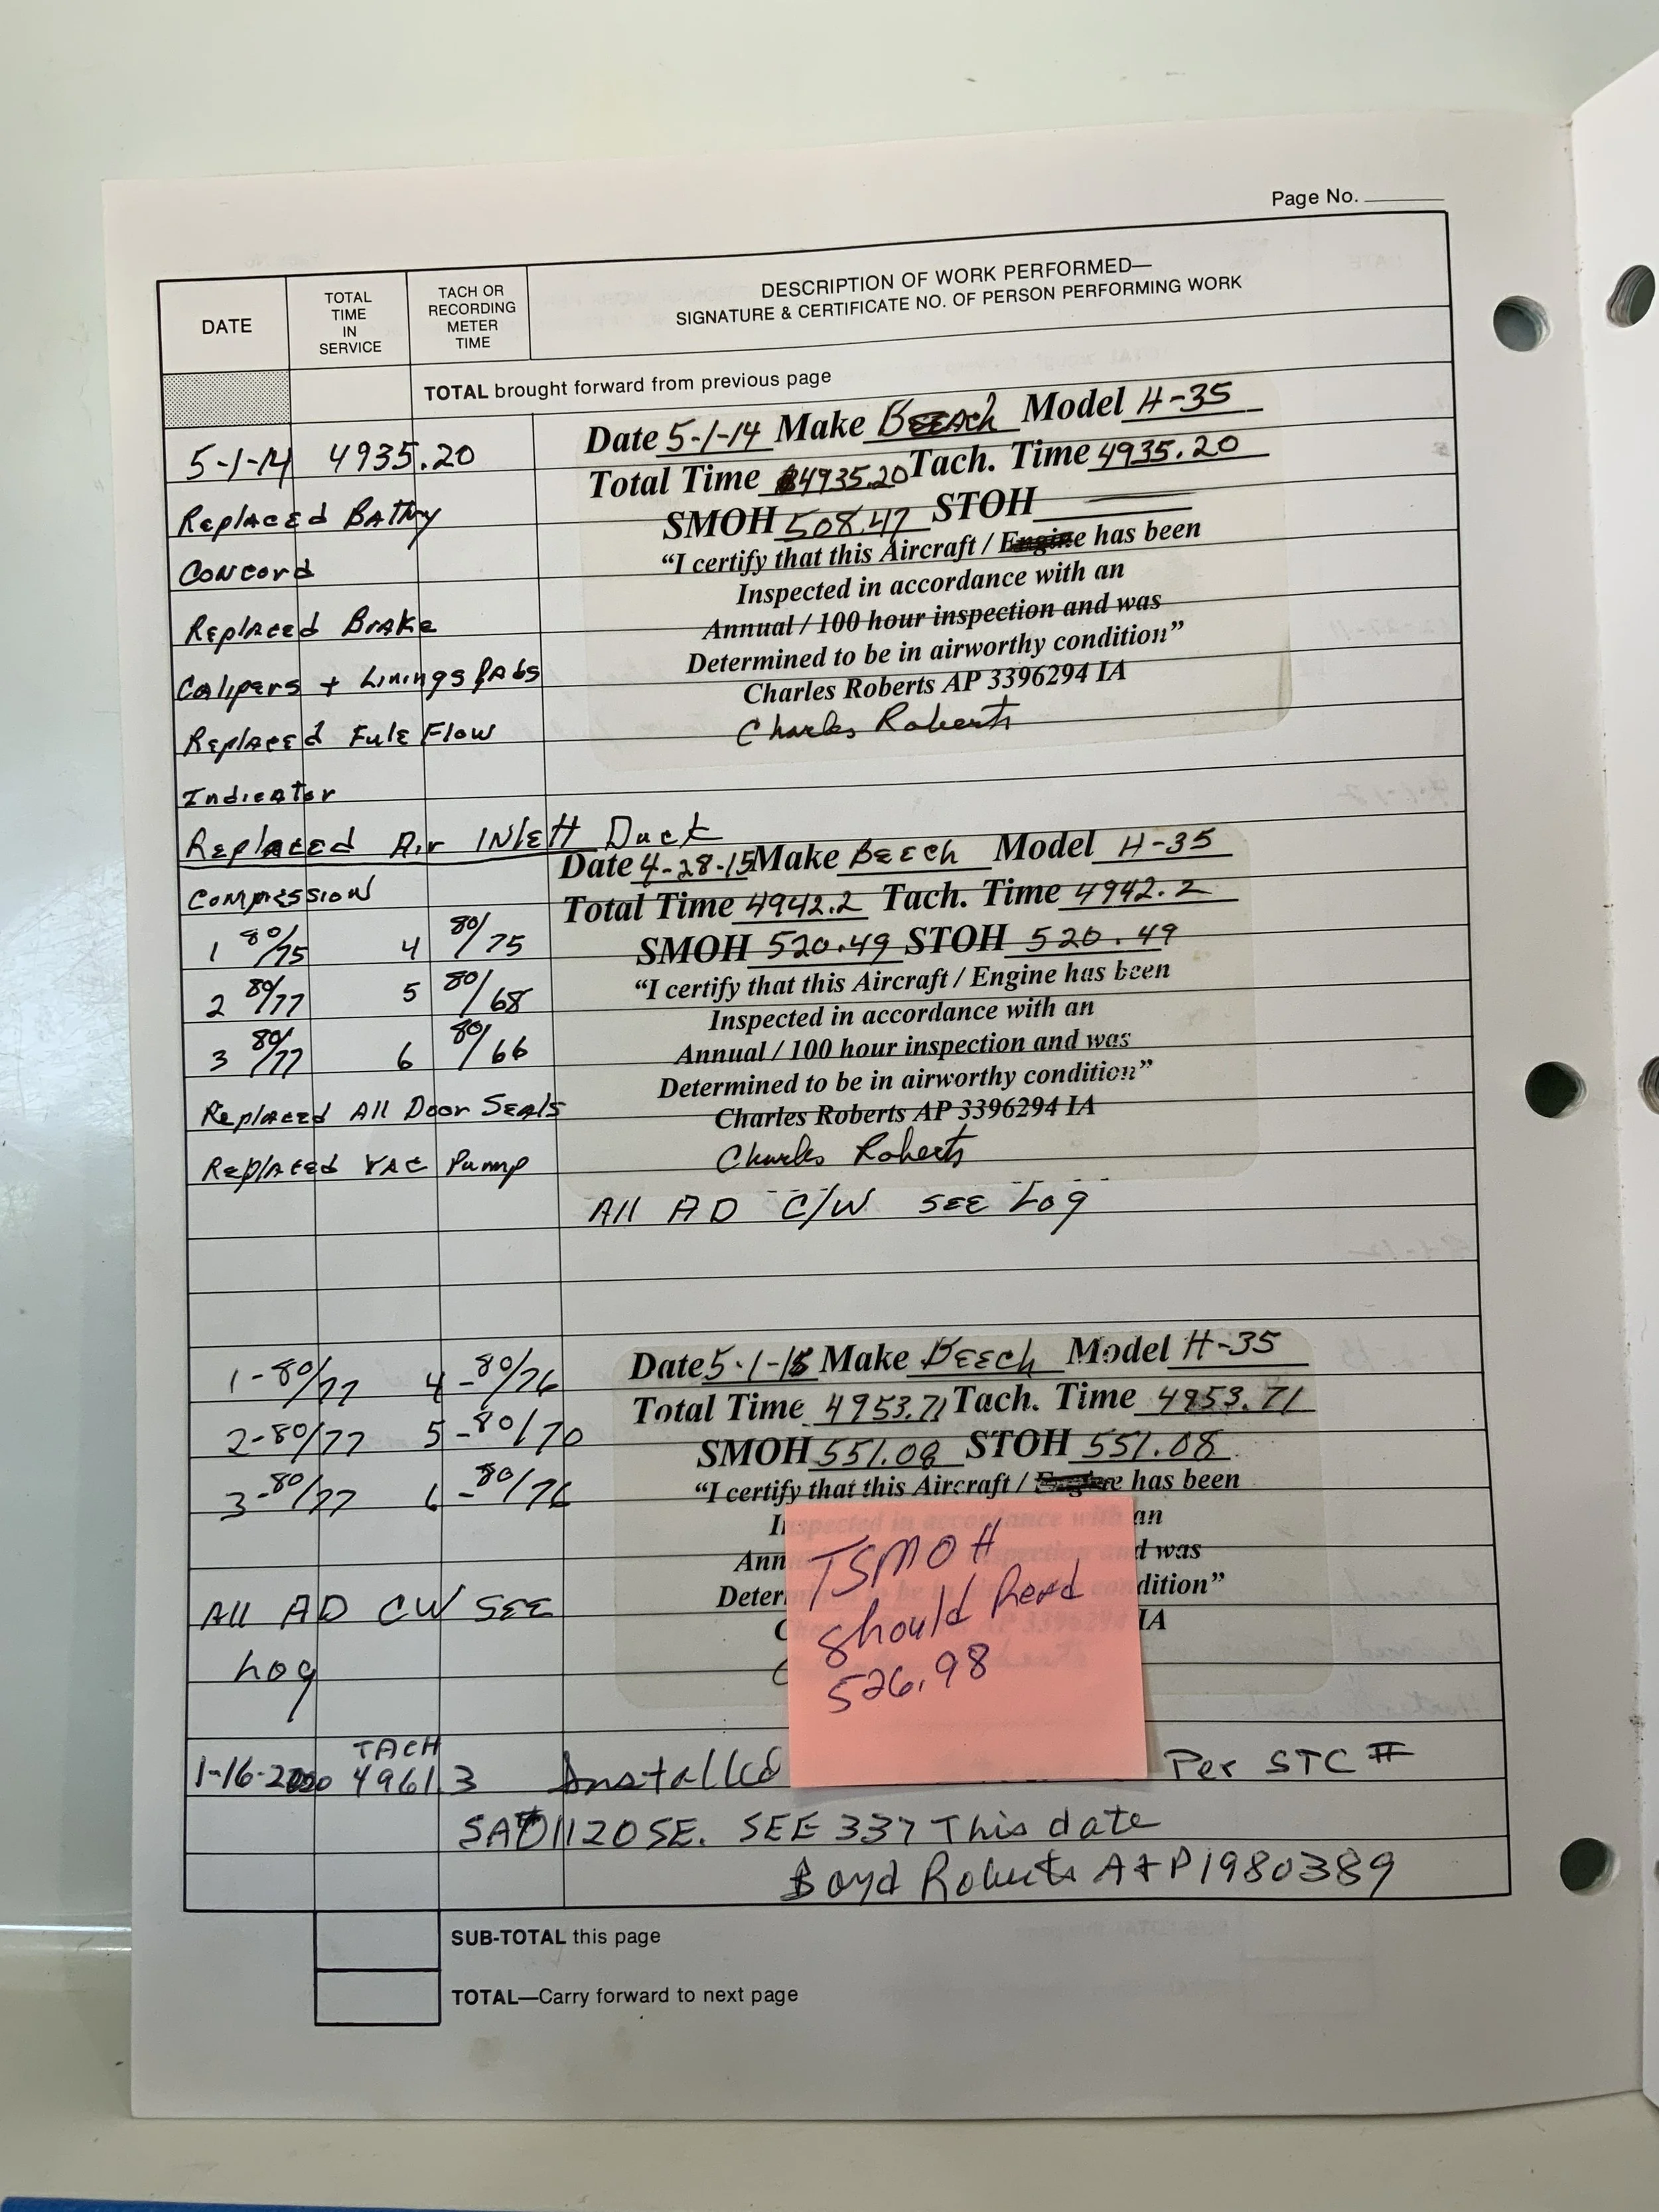 Page No.
DATE
TOTAL TIME IN SERVICE
TACH OR RECORDING METER TIME
DESCRIPTION OF WORK PERFORMED—
SIGNATURE & CERTIFICATE NO. OF PERSON PERFORMING WORK
TOTAL brought forward from previous page
5-1-14 4935.20
Replaced Battry
Concord
Replaced Brake
Calipers + Linings Pads
Replaced Fule Flow
Indicator
Replaced Air INlett Duct
Date 5-1-14 Make Beech Model H-35
Total Time 4935.20 Tach. Time 4935.20
SMOH 508.47 STOH
“I certify that this Aircraft / Engine has been
Inspected in accordance with an
Annual / 100 hour inspection and was
Determined to be in airworthy condition”
Charles Roberts AP 3396294 IA
Charles Roberts
Compression
1 80/75 4 80/75
2 80/77 5 80/68
3 80/77 6 80/66
Replaced All Door Seals
Replaced VAC Pump
Date 4-28-15 Make Beech Model H-35
Total Time 4942.2 Tach. Time 4942.2
SMOH 520.49 STOH 520.49
“I certify that this Aircraft / Engine has been
Inspected in accordance with an
Annual / 100 hour inspection and was
Determined to be in airworthy condition”
Charles Roberts AP 3396294 IA
Charles Roberts
All AD C/W SEE Log
1-80/77 4-80/76
2-80/77 5-80/70
3-80/77 6-80/76
All AD CW SEE
Log
Date 5-1-15 Make Beech Model H-35
Total Time 4953.71 Tach. Time 4953.71
SMOH 551.08 STOH 551.08
“I certify that this Aircraft / Engine has been
Inspected in accordance with an
Annual / 100 hour inspection and was
Determined to be in airworthy condition”
IA
TSMOH
should Read
526.98
TACH
1-16-2020 4961.3 Installed Per STC #
SA01120SE. SEE 337 This date
Boyd Roberts A+P1980389
SUB-TOTAL this page
TOTAL—Carry forward to next page